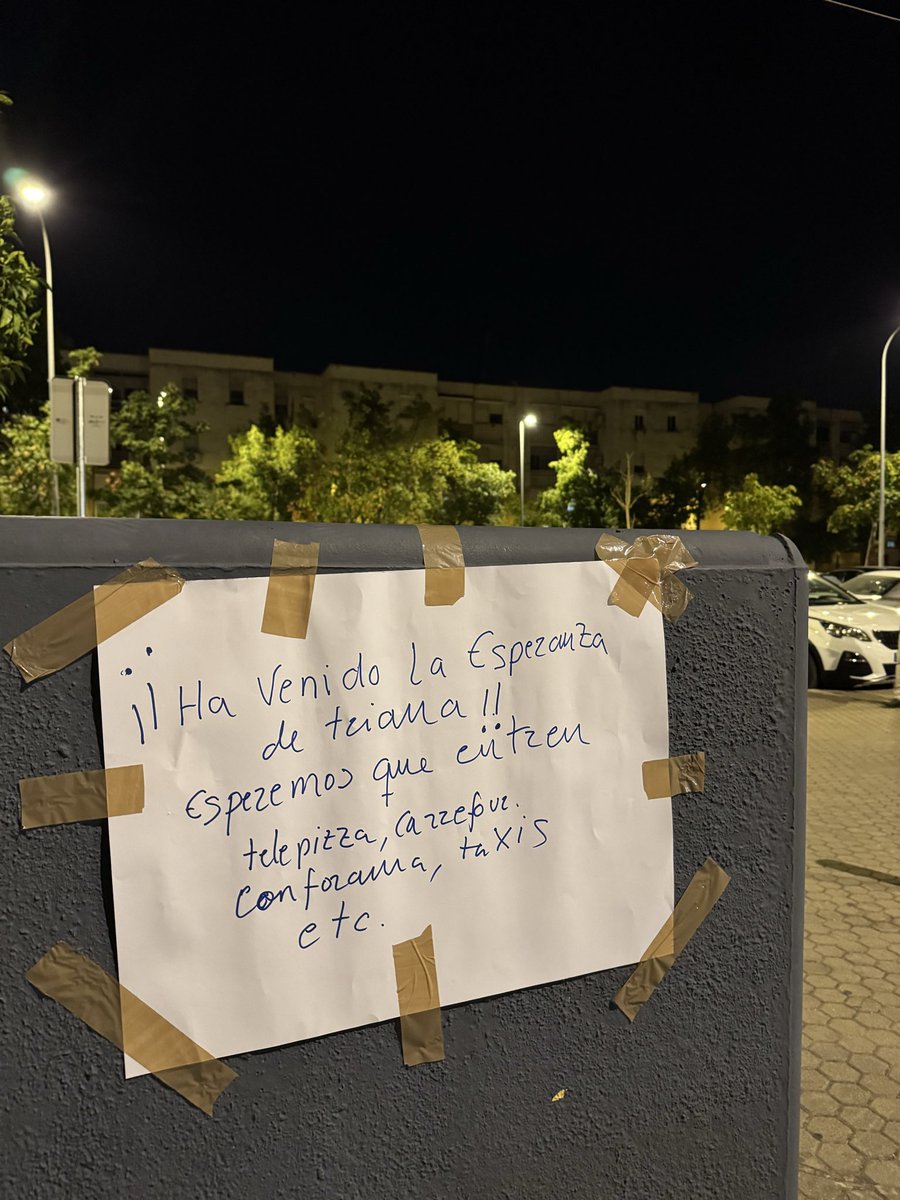 ¡¡Ha venido la Esperanza
de triana!!
Esperemos que entren
telepizza, Carrefour.
Conforama, taxis
etc.